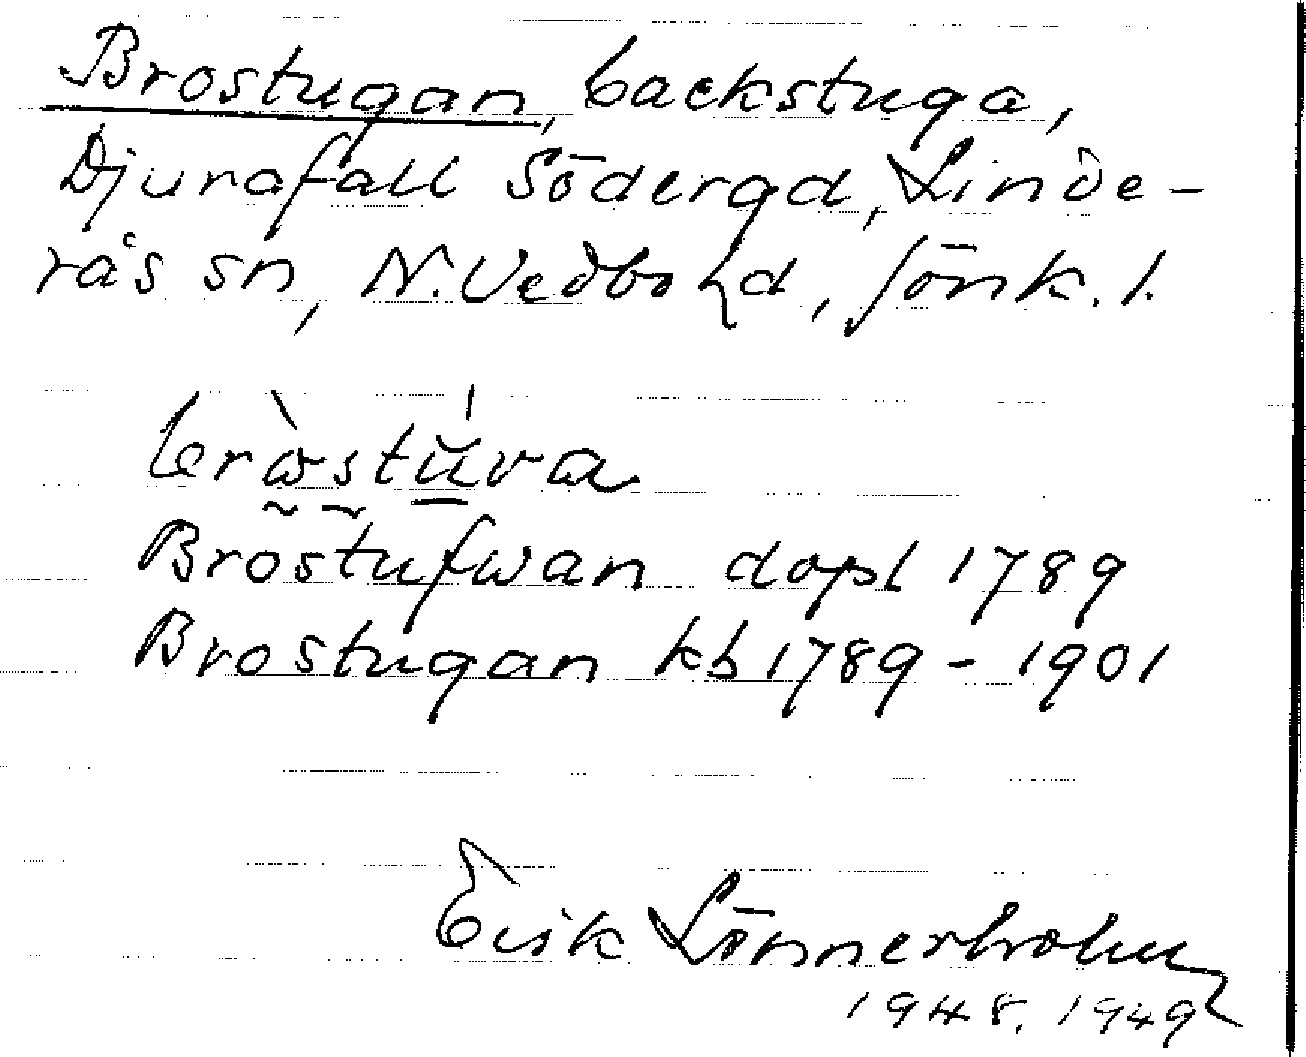 Brostugan, backstuga,
Djurafall Södergd, Linde-
rås sn, N. Vedbo hd, Jönk. l.
Brostufwan dopl 1789
Brostugan kb 1789 - 1901
Erik Lönnerholm
1948, 1949